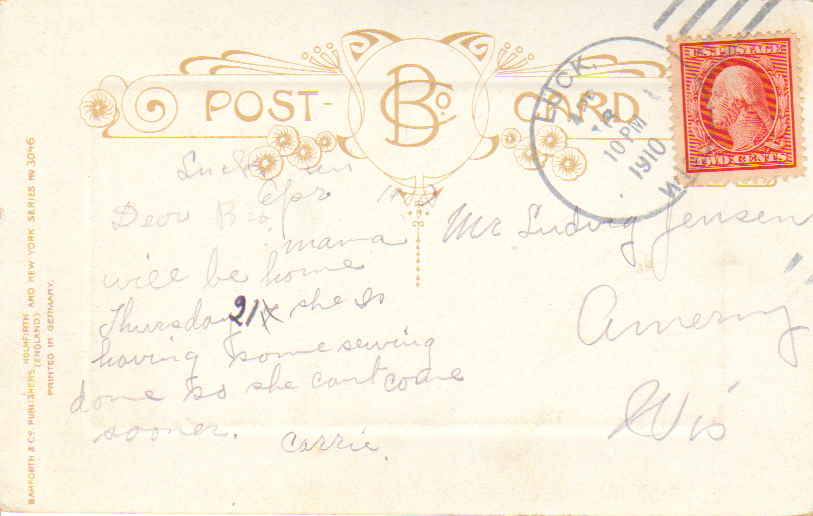 POST-CARD
BCo
LUCK.
APR
18
10 PM
1910
WIS.
U.S. POSTAGE
TWO CENTS
Luck Wis
Apr
Dear Bro
mama
will be home
Thursday 21 she is
having some sewing
done so she cant come
sooner.
Carrie.
Mr Ludvig Jensen
Amery
Wis
BAMFORTH & CO. PUBLISHERS, HOLMFIRTH AND NEW YORK SERIES No 3046
(ENGLAND)
PRINTED IN GERMANY.